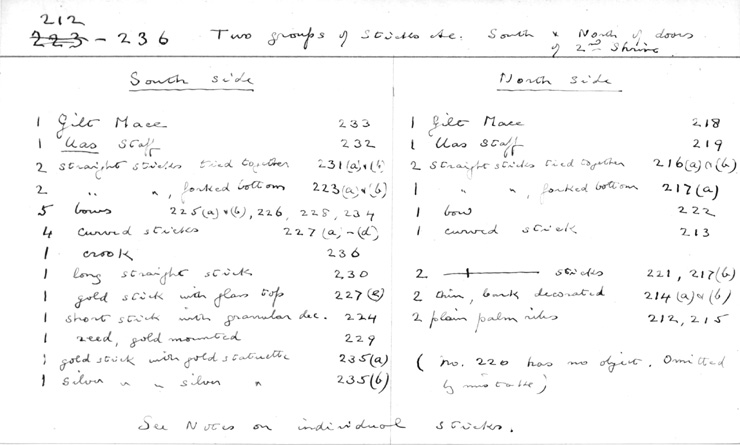 212
223 - 236 Two groups of sticks etc. South & North of doors
of 2nd Shrine
South side
1 Gilt Mace 233
1 Uas Staff 232
2 straight sticks tied together 231(a)&(b)
2 " ", forked bottom 223(a)&(b)
5 bows 225(a)&(b), 226, 228, 234
4 curved sticks 227(a)-(d)
1 crook 236
1 long straight stick 230
1 gold stick with glass top 227(e)
1 short stick with granular dec. 224
1 reed, gold mounted 229
1 gold stick with gold statuette 235(a)
1 silver " " silver " 235(b)
North side
1 Gilt Mace 218
1 Uas Staff 219
2 straight sticks tied together 216(a)&(b)
1 " ", forked bottom 217(a)
1 bow 222
1 curved stick 213
2 sticks 221, 217(b)
2 thin, bark decorated 214(a)&(b)
2 plain palm ribs 212, 215
(No. 220 has no object. Omitted
by mistake)
See Notes on individual sticks.